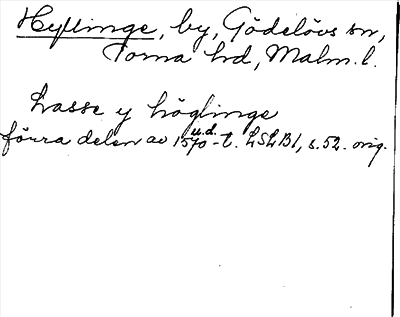 Hyllinge, by, Gödelövs sn,
Torna hd, Malm. l.
Lasse y höglinge
u.d.
förra delen av 1570-t. LSLB1, s.52. orig.